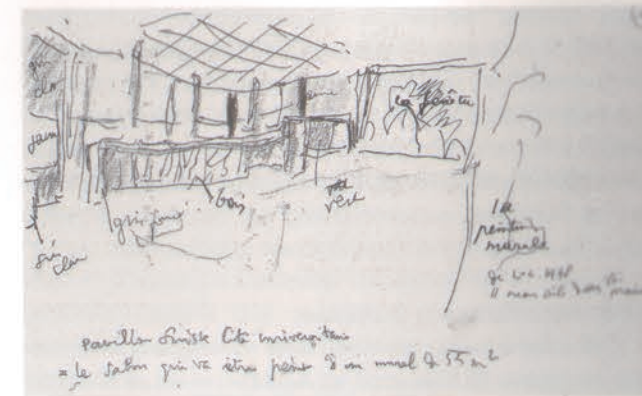 gris clair
jaune
gris clair
gris foncé
bois
vert
la fenêtre
la
peinture
murale
de L-C. 1948
Pavillon Suisse Cité universitaire
= le salon qui va être peint d'un mural de 55 m²